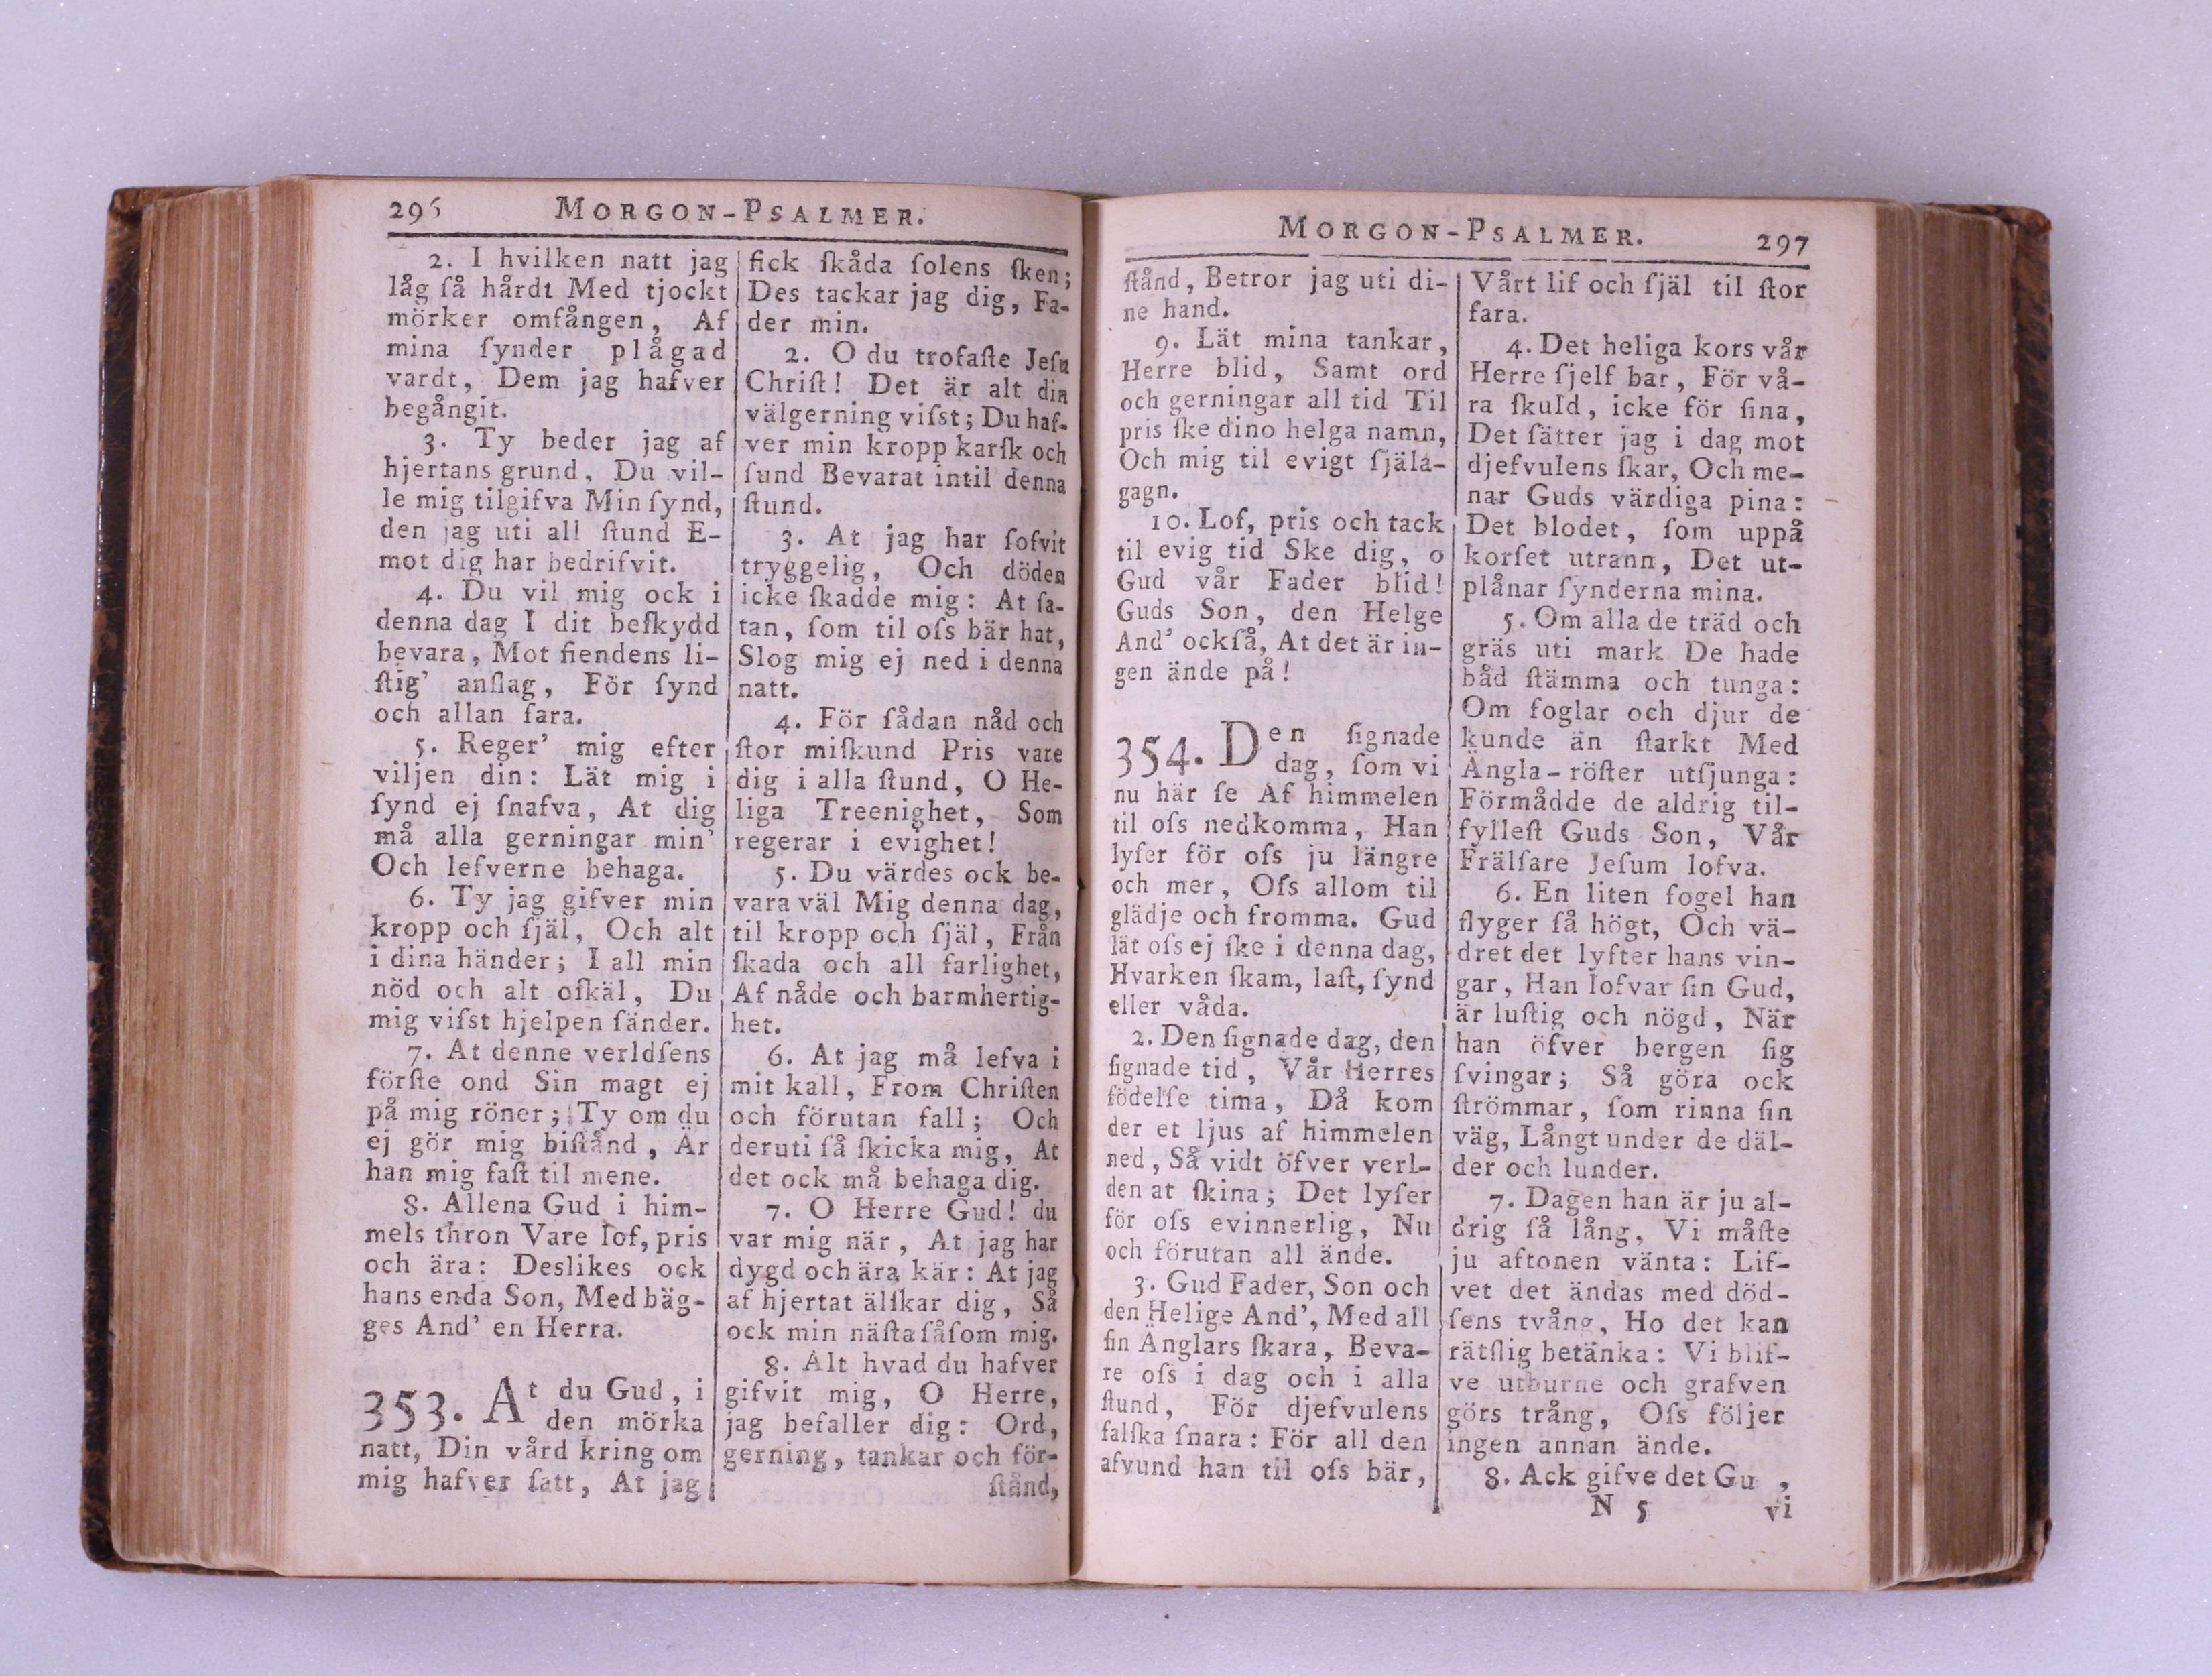 296 MORGON-PSALMER.
2. I hvilken natt jag
låg ſå hårdt Med tjockt
mörker omfången, Af
mina ſynder plågad
vardt, Dem jag hafver
begångit.
3. Ty beder jag af
hjertans grund, Du vil-
le mig tilgifva Min ſynd,
den jag uti all ſtund E-
mot dig har bedrifvit.
4. Du vil mig ock i
denna dag I dit beſkydd
bevara, Mot fiendens li-
ſtig' anſlag, För ſynd
och allan fara.
5. Reger' mig efter
viljen din: Lät mig i
ſynd ej ſnafva, At dig
må alla gerningar min'
Och lefverne behaga.
6. Ty jag gifver min
kropp och ſjäl, Och alt
i dina händer; I all min
nöd och alt oſkäl, Du
mig viſst hjelpen ſänder.
7. At denne verldſens
förſte ond Sin magt ej
på mig röner; Ty om du
ej gör mig biſtånd, Är
han mig faſt til mene.
8. Allena Gud i him-
mels thron Vare lof, pris
och ära: Deslikes ock
hans enda Son, Med bäg-
ges And' en Herra.
353. At du Gud, i
den mörka
natt, Din vård kring om
mig hafver ſatt, At jag
fick ſkåda ſolens ſken;
Des tackar jag dig, Fa-
der min.
2. O du trofaſte Jeſu
Chriſt! Det är alt din
välgerning viſst; Du haf-
ver min kropp karſk och
ſund Bevarat intil denna
ſtund.
3. At jag har ſofvit
tryggelig, Och döden
icke ſkadde mig: At ſa-
tan, ſom til oſs bär hat,
Slog mig ej ned i denna
natt.
4. För ſådan nåd och
ſtor miſkund Pris vare
dig i alla ſtund, O He-
liga Treenighet, Som
regerar i evighet!
5. Du värdes ock be-
vara väl Mig denna dag,
til kropp och ſjäl, Från
ſkada och all farlighet,
Af nåde och barmhertig-
het.
6. At jag må lefva i
mit kall, From Chriſten
och förutan fall; Och
deruti ſå ſkicka mig, At
det ock må behaga dig.
7. O Herre Gud! du
var mig när, At jag har
dygd och ära kär: At jag
af hjertat älſkar dig, Så
ock min näſta ſåſom mig.
8. Alt hvad du hafver
gifvit mig, O Herre,
jag befaller dig: Ord,
gerning, tankar och för-
ſtånd,
MORGON-PSALMER. 297
ſtånd, Betror jag uti di-
ne hand.
9. Lät mina tankar,
Herre blid, Samt ord
och gerningar all tid Til
pris ſke dino helga namn,
Och mig til evigt ſjäla-
gagn.
10. Lof, pris och tack
til evig tid Ske dig, o
Gud vår Fader blid!
Guds Son, den Helge
And' ockſå, At det är in-
gen ände på!
354. Den ſignade
dag, ſom vi
nu här ſe Af himmelen
til oſs nedkomma, Han
lyſer för oſs ju längre
och mer, Oſs allom til
glädje och fromma. Gud
lät oſs ej ſke i denna dag,
Hvarken ſkam, laſt, ſynd
eller våda.
2. Den ſignade dag, den
ſignade tid, Vår Herres
födelſe tima, Då kom
der et ljus af himmelen
ned, Så vidt öfver verl-
den at ſkina; Det lyſer
för oſs evinnerlig, Nu
och förutan all ände.
3. Gud Fader, Son och
den Helige And', Med all
ſin Änglars ſkara, Beva-
re oſs i dag och i alla
ſtund, För djefvulens
falſka ſnara: För all den
afvund han til oſs bär,
Vårt lif och ſjäl til ſtor
fara.
4. Det heliga kors vår
Herre ſjelf bar, För vå-
ra ſkuld, icke för ſina,
Det ſätter jag i dag mot
djefvulens ſkar, Och me-
nar Guds värdiga pina:
Det blodet, ſom uppå
korſet utrann, Det ut-
plånar ſynderna mina.
5. Om alla de träd och
gräs uti mark De hade
båd ſtämma och tunga:
Om foglar och djur de
kunde än ſtarkt Med
Ängla-röſter utſjunga:
Förmådde de aldrig til-
fylleſt Guds Son, Vår
Frälſare Jeſum lofva.
6. En liten fogel han
flyger ſå högt, Och vä-
dret det lyfter hans vin-
gar, Han lofvar ſin Gud,
är luſtig och nögd, När
han öfver bergen ſig
ſvingar; Så göra ock
ſtrömmar, ſom rinna ſin
väg, Långt under de däl-
der och lunder.
7. Dagen han är ju al-
drig ſå lång, Vi måſte
ju aftonen vänta: Lif-
vet det ändas med död-
ſens tvång, Ho det kan
rätſlig betänka: Vi blif-
ve utburne och grafven
görs trång, Oſs följer
ingen annan ände.
8. Ack gifve det Gu ,
N 5 vi